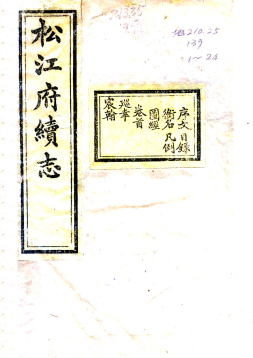 松江府續志
序文目錄
銜名凡例
圖經
卷首
巡幸
宸翰
210.25
139
1~24